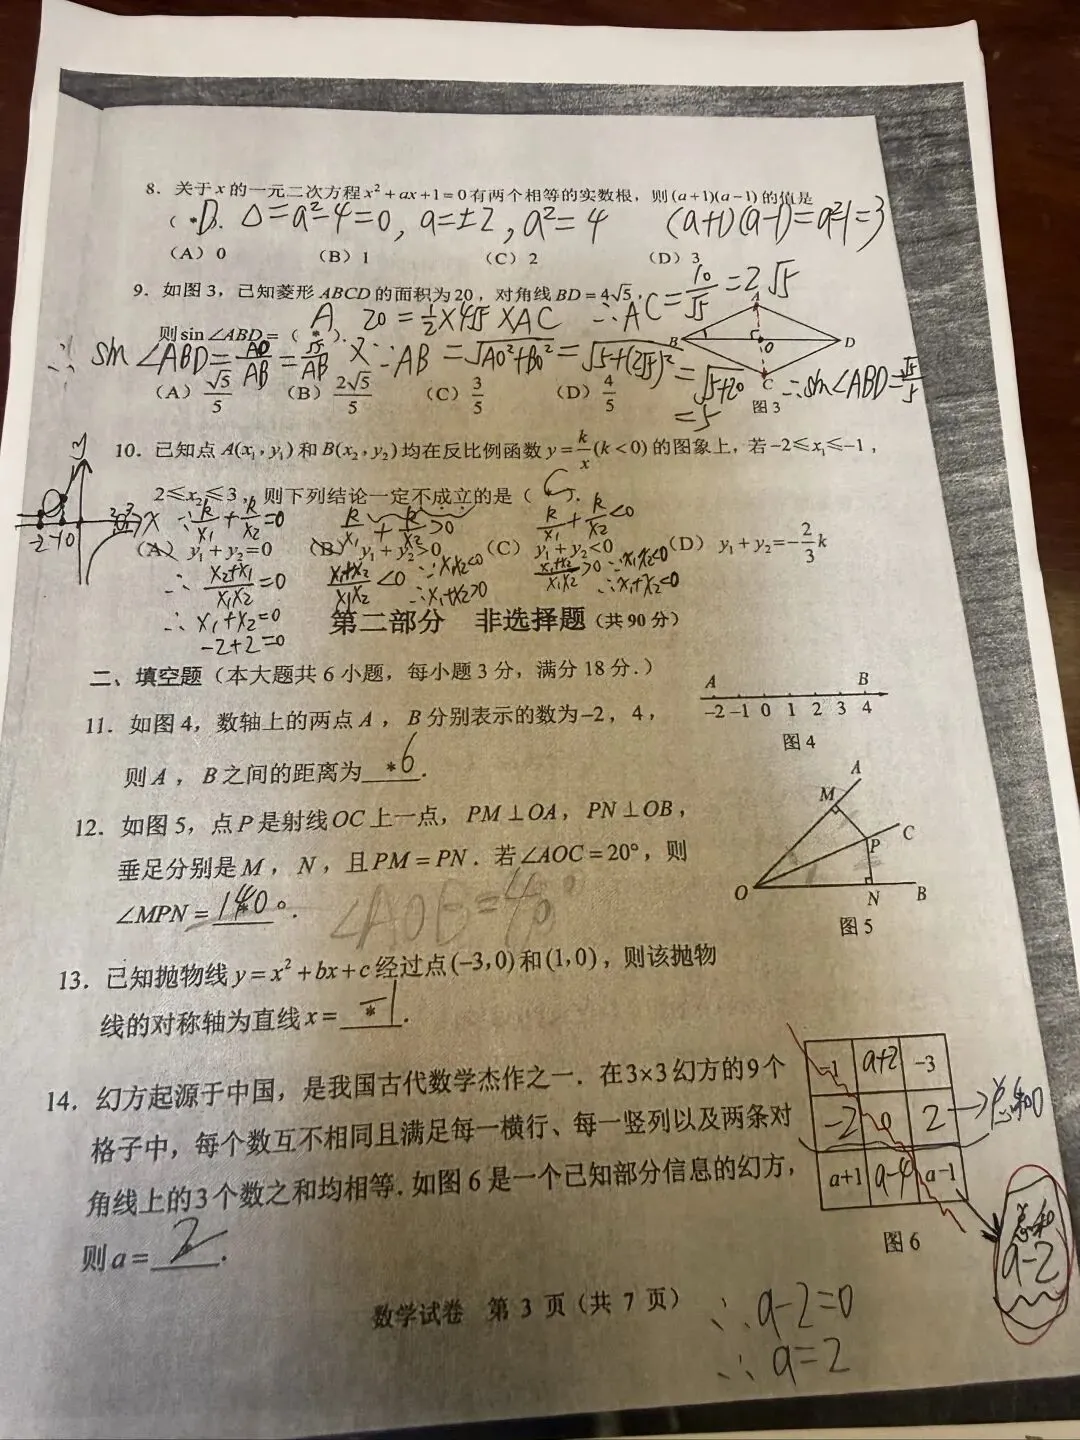 8. 关于 x 的一元二次方程 x² + ax + 1 = 0 有两个相等的实数根，则 (a+1)(a−1) 的值是
( *D ). Δ=a²−4=0, a=±2, a²=4 (a+1)(a−1)=a²−1=3
(A) 0 (B) 1 (C) 2 (D) 3
9. 如图 3，已知菱形 ABCD 的面积为 20，对角线 BD = 4√5，
∴AC=10/√5=2√5
A 20=½×4√5×AC
则 sin∠ABD = ( * ).
∴ sin∠ABD=AO/AB=√5/AB ∵AB=√AO²+BO²=√5+(2√5)²
=√5+20
=5
∴sin∠ABD=√5/5
(A) √5/5 (B) 2√5/5 (C) 3/5 (D) 4/5
A
B
O
D
C
图 3
10. 已知点 A(x₁, y₁) 和 B(x₂, y₂) 均在反比例函数 y = k/x (k < 0) 的图象上，若 −2≤x₁≤−1，
2≤x₂≤3，则下列结论一定不成立的是 ( C ).
y
x
-2 -1 0 2 3
∴k/x₁+k/x₂=0 k/x₁+k/x₂>0 k/x₁+k/x₂<0
(A) y₁ + y₂ = 0 (B) y₁ + y₂ > 0 (C) y₁ + y₂ < 0 (D) y₁ + y₂ = −2/3 k
∴ x₂+x₁/x₁x₂=0 x₁+x₂/x₁x₂<0 ∵x₁x₂<0 x₁+x₂/x₁x₂>0 ∵x₁x₂<0
∴x₁+x₂>0 ∴x₁+x₂<0
∴ x₁+x₂=0
-2+2=0
第二部分 非选择题 (共 90 分)
二、填空题（本大题共 6 小题，每小题 3 分，满分 18 分.）
11. 如图 4，数轴上的两点 A，B 分别表示的数为−2，4，
则 A，B 之间的距离为 *6 .
A B
−2 −1 0 1 2 3 4
图 4
12. 如图 5，点 P 是射线 OC 上一点，PM⊥OA，PN⊥OB，
垂足分别是 M，N，且 PM = PN．若∠AOC = 20°，则
∠MPN = 140 °.
∠AOB=40°
A
M
C
P
O
N
B
图 5
13. 已知抛物线 y = x² + bx + c 经过点 (−3,0) 和 (1,0)，则该抛物
线的对称轴为直线 x = −1 .
14. 幻方起源于中国，是我国古代数学杰作之一．在 3×3 幻方的 9 个
格子中，每个数互不相同且满足每一横行、每一竖列以及两条对
角线上的 3 个数之和均相等．如图 6 是一个已知部分信息的幻方，
则 a = 2 .
-1 a+2 −3
-2 0 2 →总和0
a+1 a-4 a−1
总和
a-2
图 6
数学试卷 第 3 页（共 7 页）
∴a-2=0
∴a=2